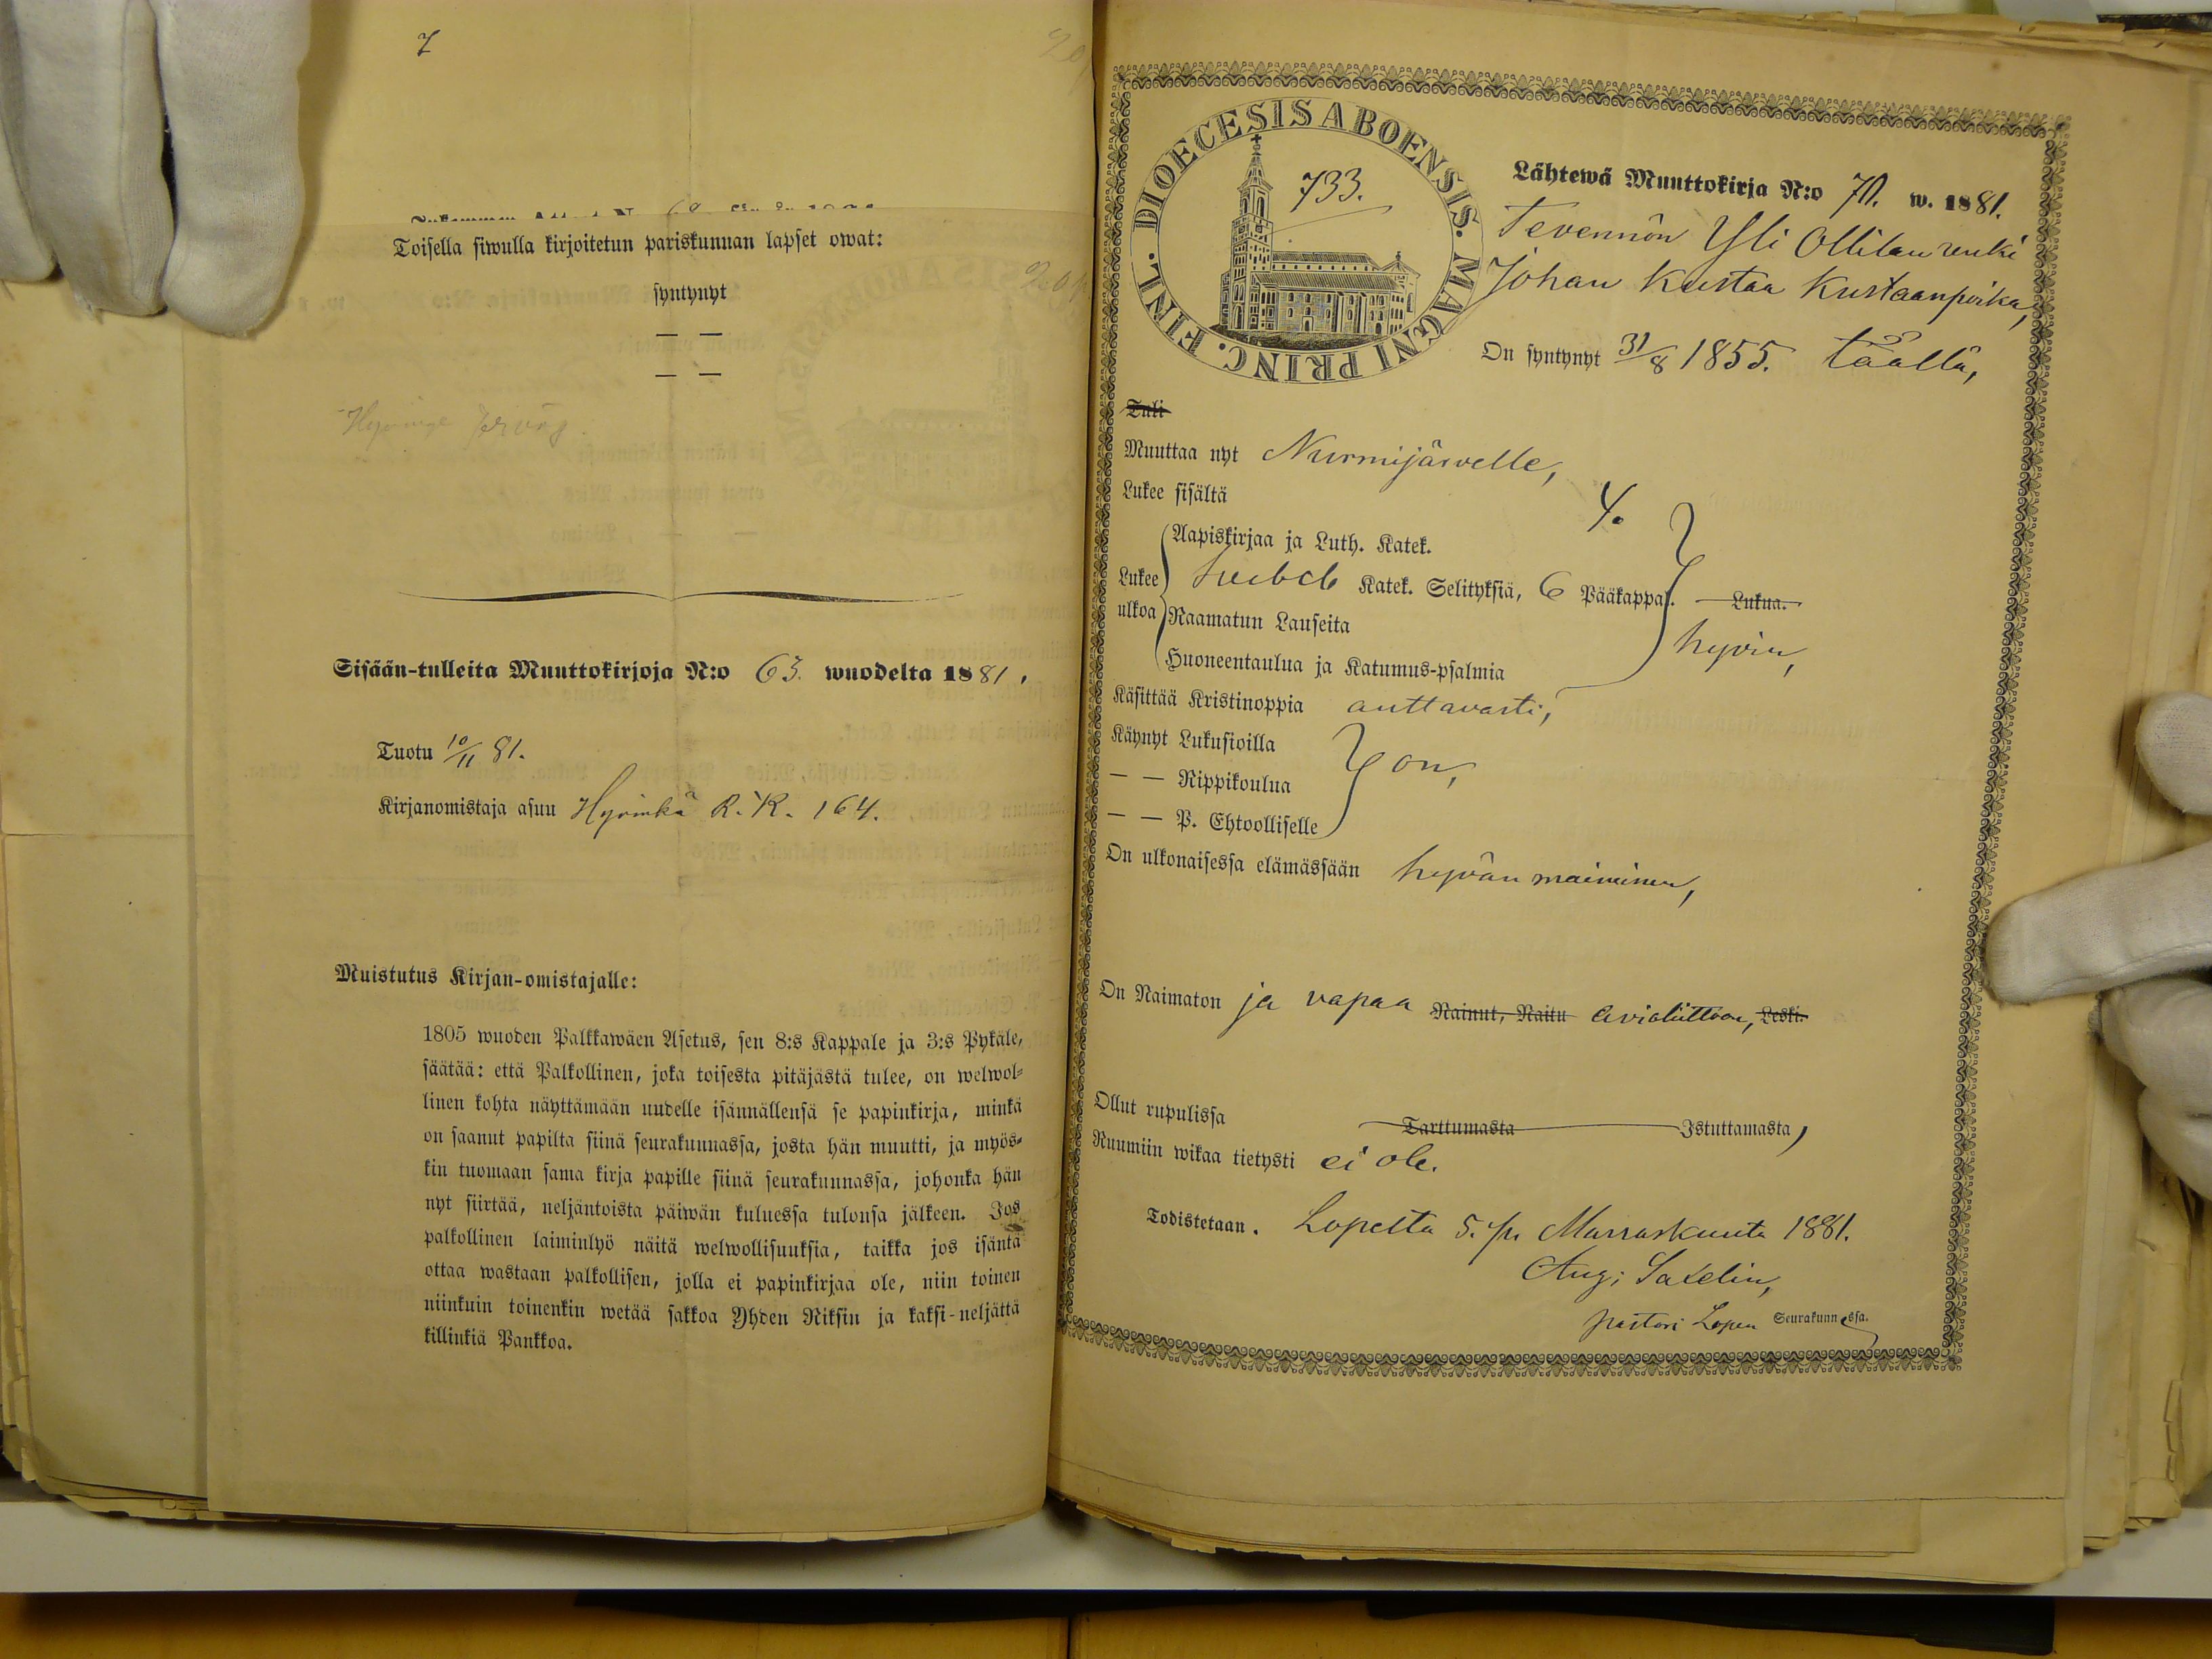 7
Toisella siwulla kirjoitetun pariskunnan lapset owat:
syntynyt
— —
— —
Sisään-tulleita Muuttokirjoja N:o 63. wuodelta 1881.
Tuotu 10/11 81.
Kirjanomistaja asuu Hyvinkä R. K. 164.
Muistutus Kirjan-omistajalle:
1805 wuoden Palkkawäen Asetus, sen 8:s Kappale ja 3:s Pykäle,
säätää: että Palkollinen, joka toisesta pitäjästä tulee, on welwol-
linen kohta näyttämään uudelle isännällensä se papinkirja, minkä
on saanut papilta siinä seurakunnassa, josta hän muutti, ja myös-
kin tuomaan sama kirja papille siinä seurakunnassa, johonka hän
nyt siirtää, neljäntoista päiwän kuluessa tulonsa jälkeen. Jos
palkollinen laiminlyö näitä welwollisuuksia, taikka jos isäntä
ottaa wastaan palkollisen, jolla ei papinkirjaa ole, niin toinen
niinkuin toinenkin wetää sakkoa Yhden Riksin ja kaksi-neljättä
killinkiä Pankkoa.
DIOECESIS ABOENSIS. MAGNI PRINC. FINL.
733.
Lähtewä Muuttokirja N:o 70. w. 1881.
Tevennön Yli Ollilan renki
Johan Kustaa Kustaanpoika,
On syntynyt 31/8 1855. täällä,
Tuli
Muuttaa nyt Nurmijärvelle,
Lukee sisältä 4.
Aapiskirjaa ja Luth. Katek.
Lukee Katek. Selityksiä, 6 Pääkappal. Lukua.
ulkoa Raamatun Lauseita hyvin,
Huoneentaulua ja Katumus-psalmia
Käsittää Kristinoppia auttavasti,
Käynyt Lukusioilla
— — Rippikoulua on,
— — P. Ehtoolliselle
On ulkonaisessa elämässään hyvän maininen,
On Naimaton ja vapaa Nainut, Naitu avioliittoon, Leski.
Ollut rupulissa Tarttumasta Istuttamasta,
Ruumiin wikaa tietysti ei ole.
Todistetaan. Lopelta 5. p. Marraskuuta 1881.
Aug:
pastori Lopen Seurakunnassa.